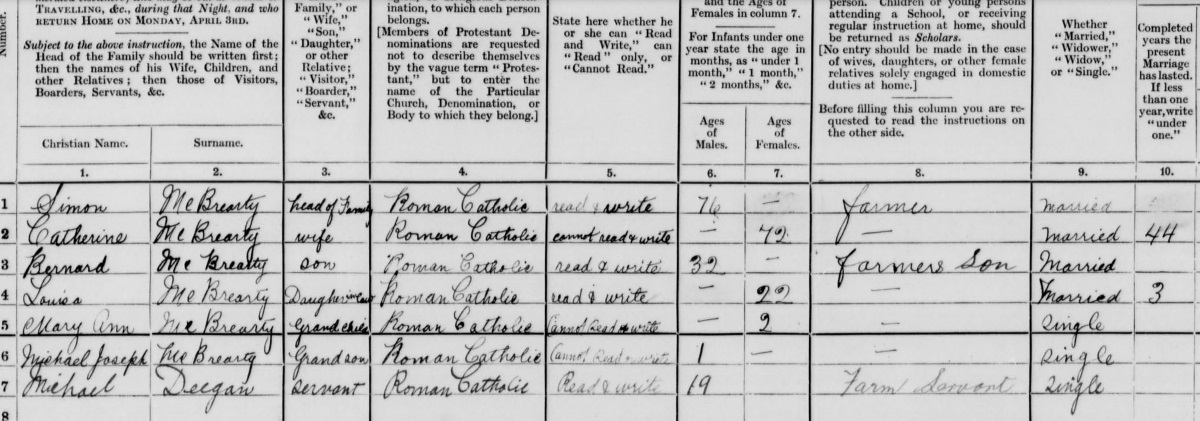 TRAVELLING, &c., during that Night, and who
RETURN HOME ON MONDAY, APRIL 3RD.
Subject to the above instruction, the Name of the
Head of the Family should be written first;
then the names of his Wife, Children, and
other Relatives; then those of Visitors,
Boarders, Servants, &c.
Christian Name.
Surname.
Number.
Family," or
"Wife,"
"Son,"
"Daughter,"
or other
Relative;
"Visitor,"
"Boarder,"
"Servant,"
&c.
nation, to which each person
belongs.
[Members of Protestant De-
nominations are requested
not to describe themselves
by the vague term "Protes-
tant," but to enter the
name of the Particular
Church, Denomination, or
Body to which they belong.]
State here whether he
or she can "Read
and Write," can
"Read" only, or
"Cannot Read."
and the Ages of
Females in column 7.
For Infants under one
year state the age in
months, as "under 1
month," "1 month,"
"2 months," &c.
Ages
of
Males.
Ages
of
Females.
person. Children or young persons
attending a School, or receiving
regular instruction at home, should
be returned as Scholars.
[No entry should be made in the case
of wives, daughters, or other female
relatives solely engaged in domestic
duties at home.]
Before filling this column you are re-
quested to read the instructions on
the other side.
Whether
"Married,"
"Widower,"
"Widow,"
or "Single."
Completed
years the
present
Marriage
has lasted.
If less
than one
year, write
"under
one."
1. 2. 3. 4. 5. 6. 7. 8. 9. 10.
1 Simon McBrearty head of Family Roman Catholic read & write 76 — farmer Married
2 Catherine McBrearty wife Roman Catholic cannot read & write — 72 — Married 44
3 Bernard McBrearty son Roman Catholic read & write 32 — farmers Son Married
4 Louisa McBrearty Daugher in Law Roman Catholic read & write — 22 — Married 3
5 Mary Ann McBrearty Grand child Roman Catholic Cannot Read & write — 2 — Single
6 Michael Joseph McBrearty Grand son Roman Catholic Cannot Read & write 1 — — Single
7 Michael Deegan servant Roman Catholic Read & write 19 Farm Servant Single
8